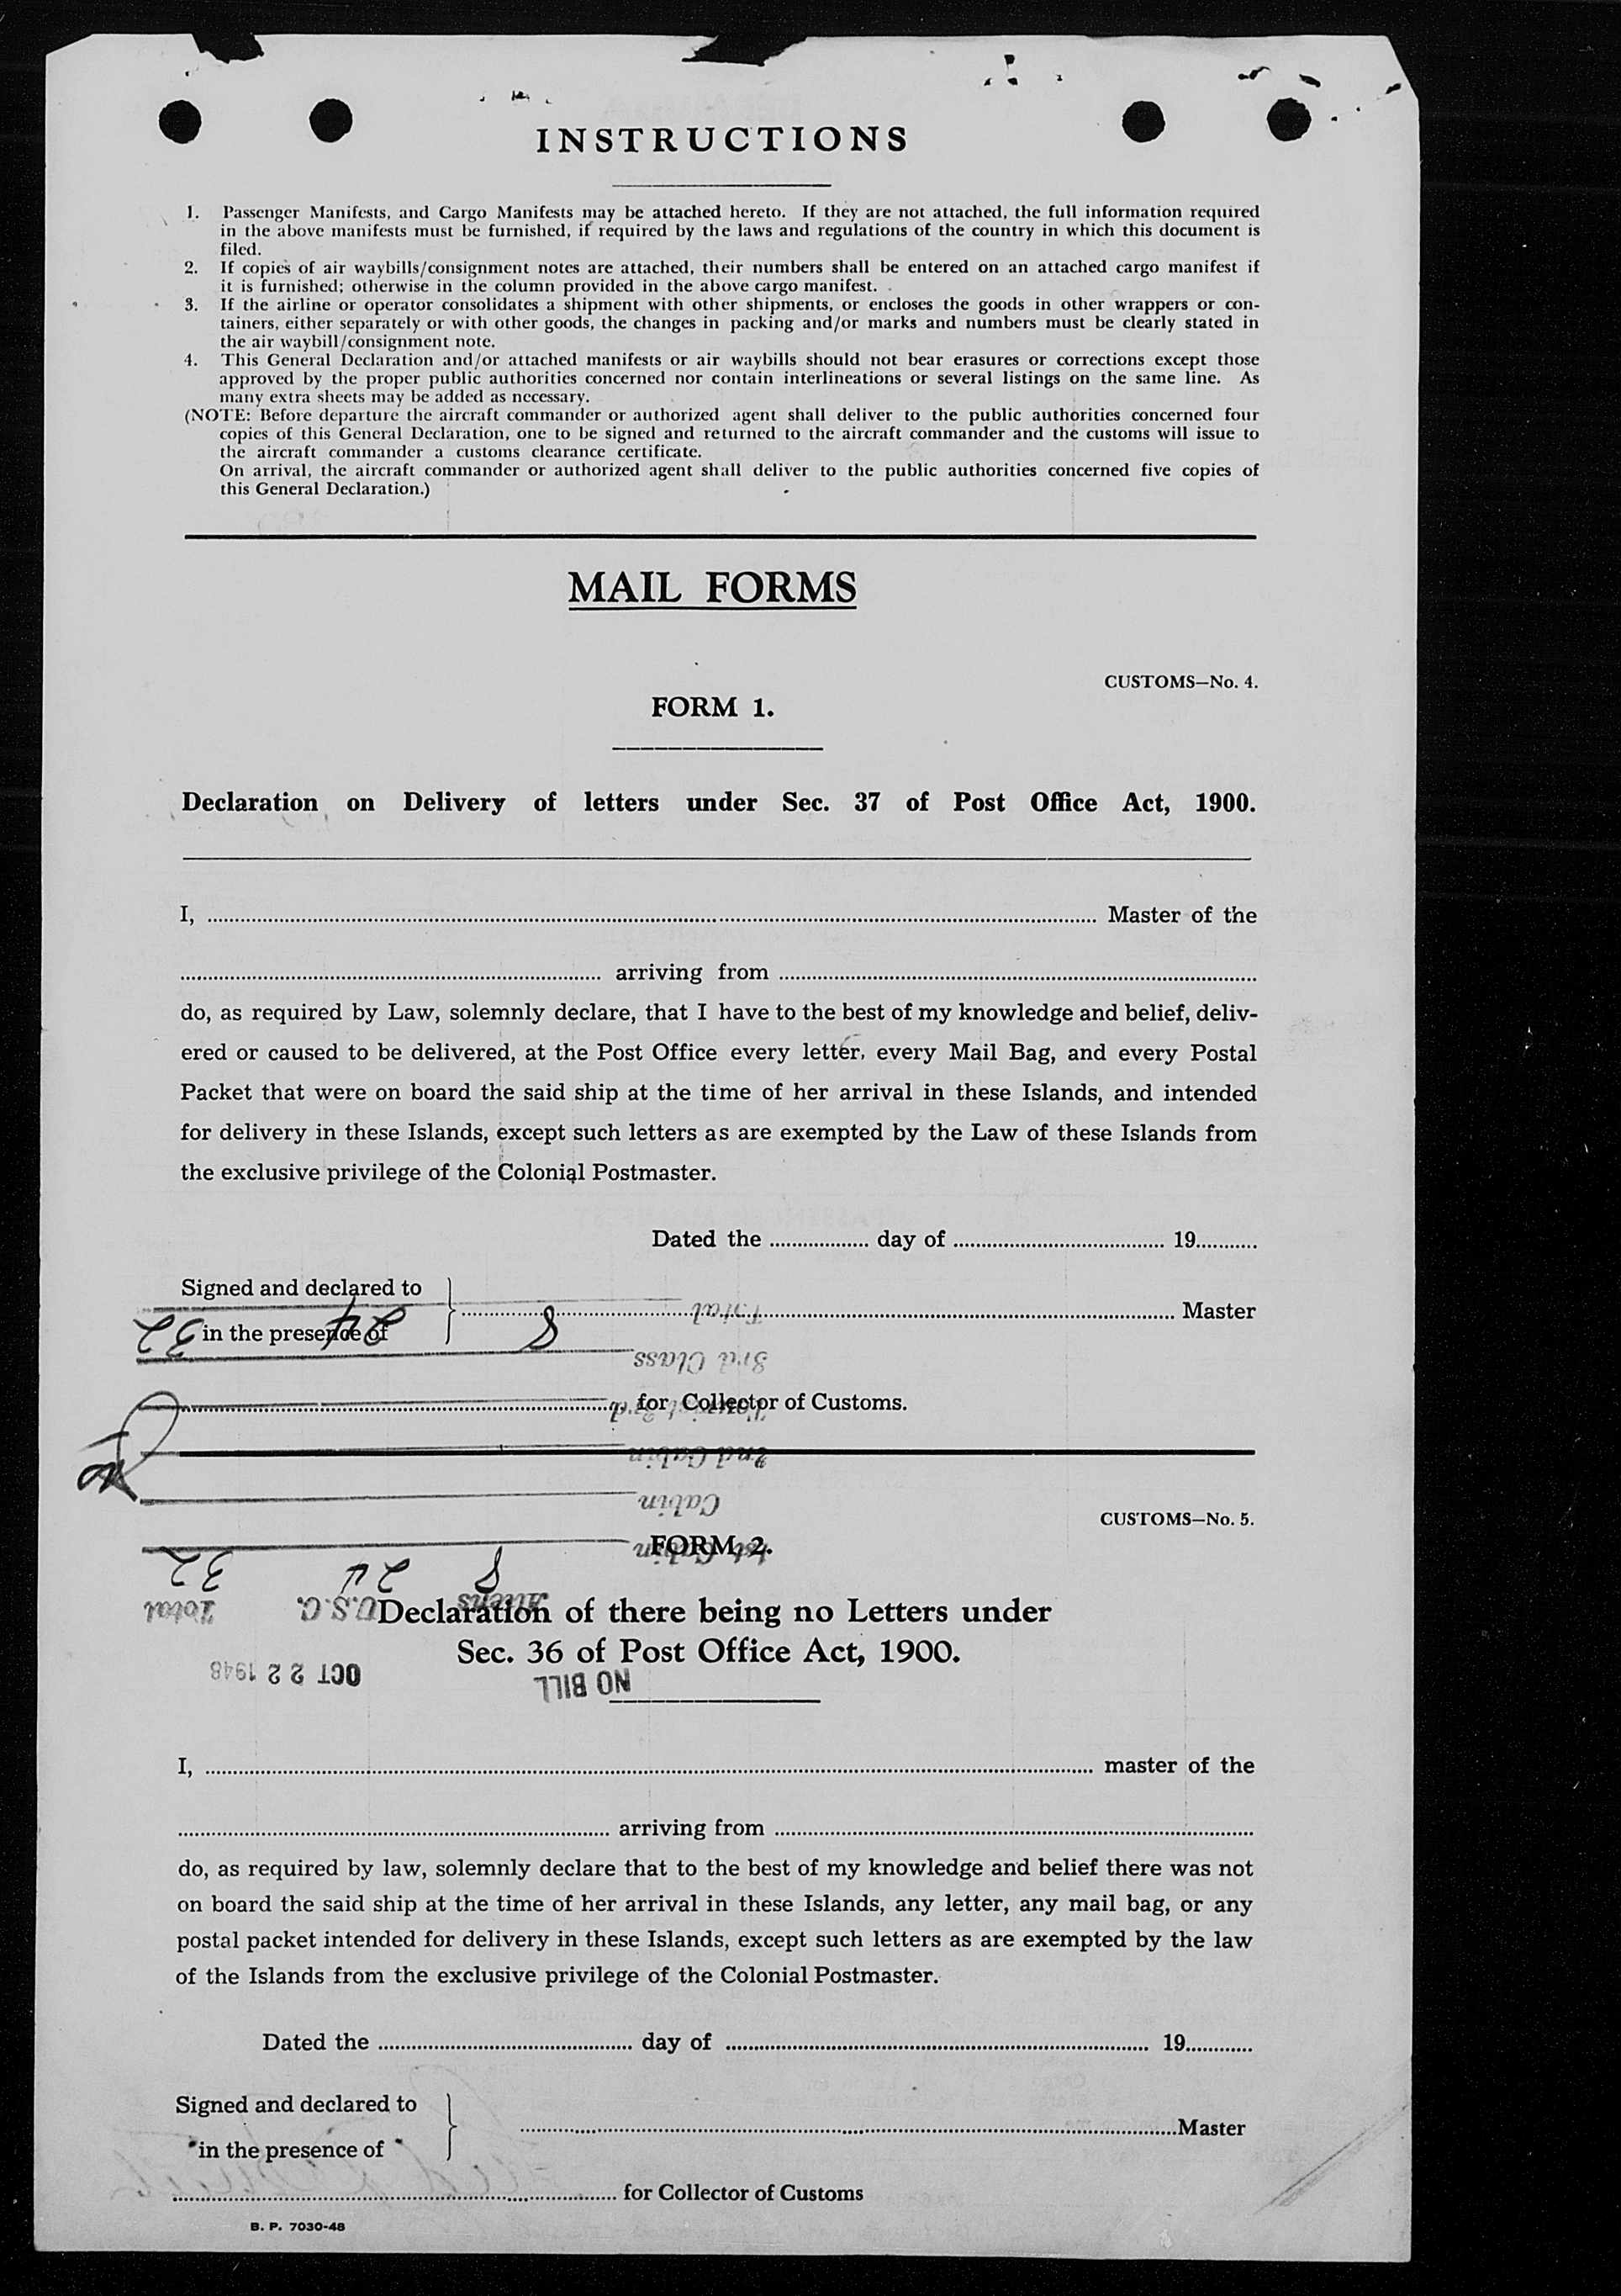 INSTRUCTIONS
1. Passenger Manifests, and Cargo Manifests may be attached hereto. If they are not attached, the full information required
in the above manifests must be furnished, if required by the laws and regulations of the country in which this document is
filed.
2. If copies of air waybills/consignment notes are attached, their numbers shall be entered on an attached cargo manifest if
it is furnished; otherwise in the column provided in the above cargo manifest.
3. If the airline or operator consolidates a shipment with other shipments, or encloses the goods in other wrappers or con-
tainers, either separately or with other goods, the changes in packing and/or marks and numbers must be clearly stated in
the air waybill/consignment note.
4. This General Declaration and/or attached manifests or air waybills should not bear erasures or corrections except those
approved by the proper public authorities concerned nor contain interlineations or several listings on the same line. As
many extra sheets may be added as necessary.
(NOTE: Before departure the aircraft commander or authorized agent shall deliver to the public authorities concerned four
copies of this General Declaration, one to be signed and returned to the aircraft commander and the customs will issue to
the aircraft commander a customs clearance certificate.
On arrival, the aircraft commander or authorized agent shall deliver to the public authorities concerned five copies of
this General Declaration.)
MAIL FORMS
CUSTOMS—No. 4.
FORM 1.
Declaration on Delivery of letters under Sec. 37 of Post Office Act, 1900.
I, ........ Master of the
........ arriving from ........
do, as required by Law, solemnly declare, that I have to the best of my knowledge and belief, deliv-
ered or caused to be delivered, at the Post Office every letter, every Mail Bag, and every Postal
Packet that were on board the said ship at the time of her arrival in these Islands, and intended
for delivery in these Islands, except such letters as are exempted by the Law of these Islands from
the exclusive privilege of the Colonial Postmaster.
Dated the ........ day of ........ 19........
Signed and declared to
........ Master
in the presence of
........ for Collector of Customs.
CUSTOMS—No. 5.
FORM 2.
Declaration of there being no Letters under
Sec. 36 of Post Office Act, 1900.
I, ........ master of the
........ arriving from ........
do, as required by law, solemnly declare that to the best of my knowledge and belief there was not
on board the said ship at the time of her arrival in these Islands, any letter, any mail bag, or any
postal packet intended for delivery in these Islands, except such letters as are exempted by the law
of the Islands from the exclusive privilege of the Colonial Postmaster.
Dated the ........ day of ........ 19........
Signed and declared to
........ Master
in the presence of
........ for Collector of Customs
B. P. 7030-48
NO BILL
OCT 22 1948
Aliens U.S.C. Total
8 24 32
1st Cabin
Cabin
2nd Cabin
3rd Class
8 24 32
Total